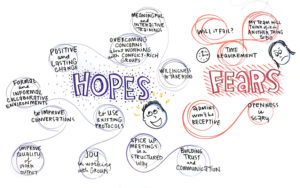 MEANINGFUL
and
INTERACTIVE
TRAINING
OVERCOMING
CONCERNS
about WORKING
with CONFLICT-RICH
GROUPS
POSITIVE
and
LASTING
CHANGE
WILLINGNESS
to TAKE RISKS
FORMAL and
INFORMAL
COLLABORATIVE
ENVIRONMENTS
HOPES
to IMPROVE
CONVERSATIONS
to USE
EXISTING
PROTOCOLS
IMPROVE
QUALITY
of
OUTPUT
JOY
in WORKING
with GROUPS
SPICE UP
MEETINGS
in a
STRUCTURED
WAY
BUILDING
TRUST and
COMMUNICATION
WILL IT FAIL?
MY TEAM WILL
THINK it is
ANOTHER
THING
to DO
TIME
REQUIREMENT
FEARS
WON'T BE
RECEPTIVE
OPENNESS
is
SCARY